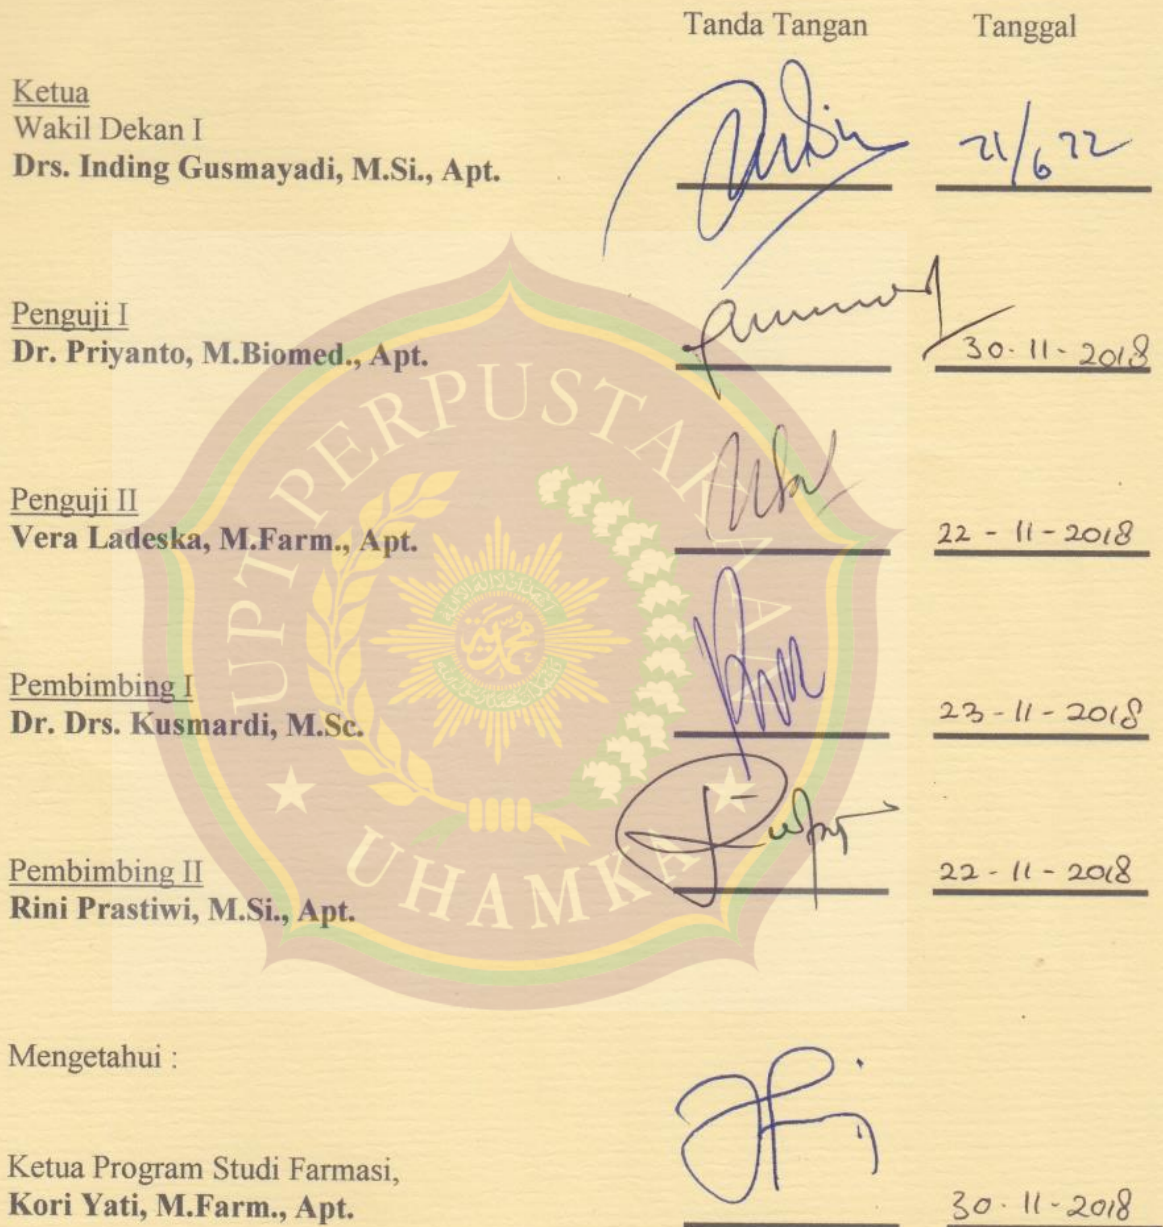 Tanda Tangan Tanggal
Ketua
Wakil Dekan I
Drs. Inding Gusmayadi, M.Si., Apt. 21/6 22
Penguji I
Dr. Priyanto, M.Biomed., Apt. 30-11-2018
Penguji II
Vera Ladeska, M.Farm., Apt. 22-11-2018
Pembimbing I
Dr. Drs. Kusmardi, M.Sc. 23-11-2018
Pembimbing II
Rini Prastiwi, M.Si., Apt. 22-11-2018
UPT PERPUSTAKAAN
UHAMKA
Mengetahui :
Ketua Program Studi Farmasi,
Kori Yati, M.Farm., Apt. 30-11-2018